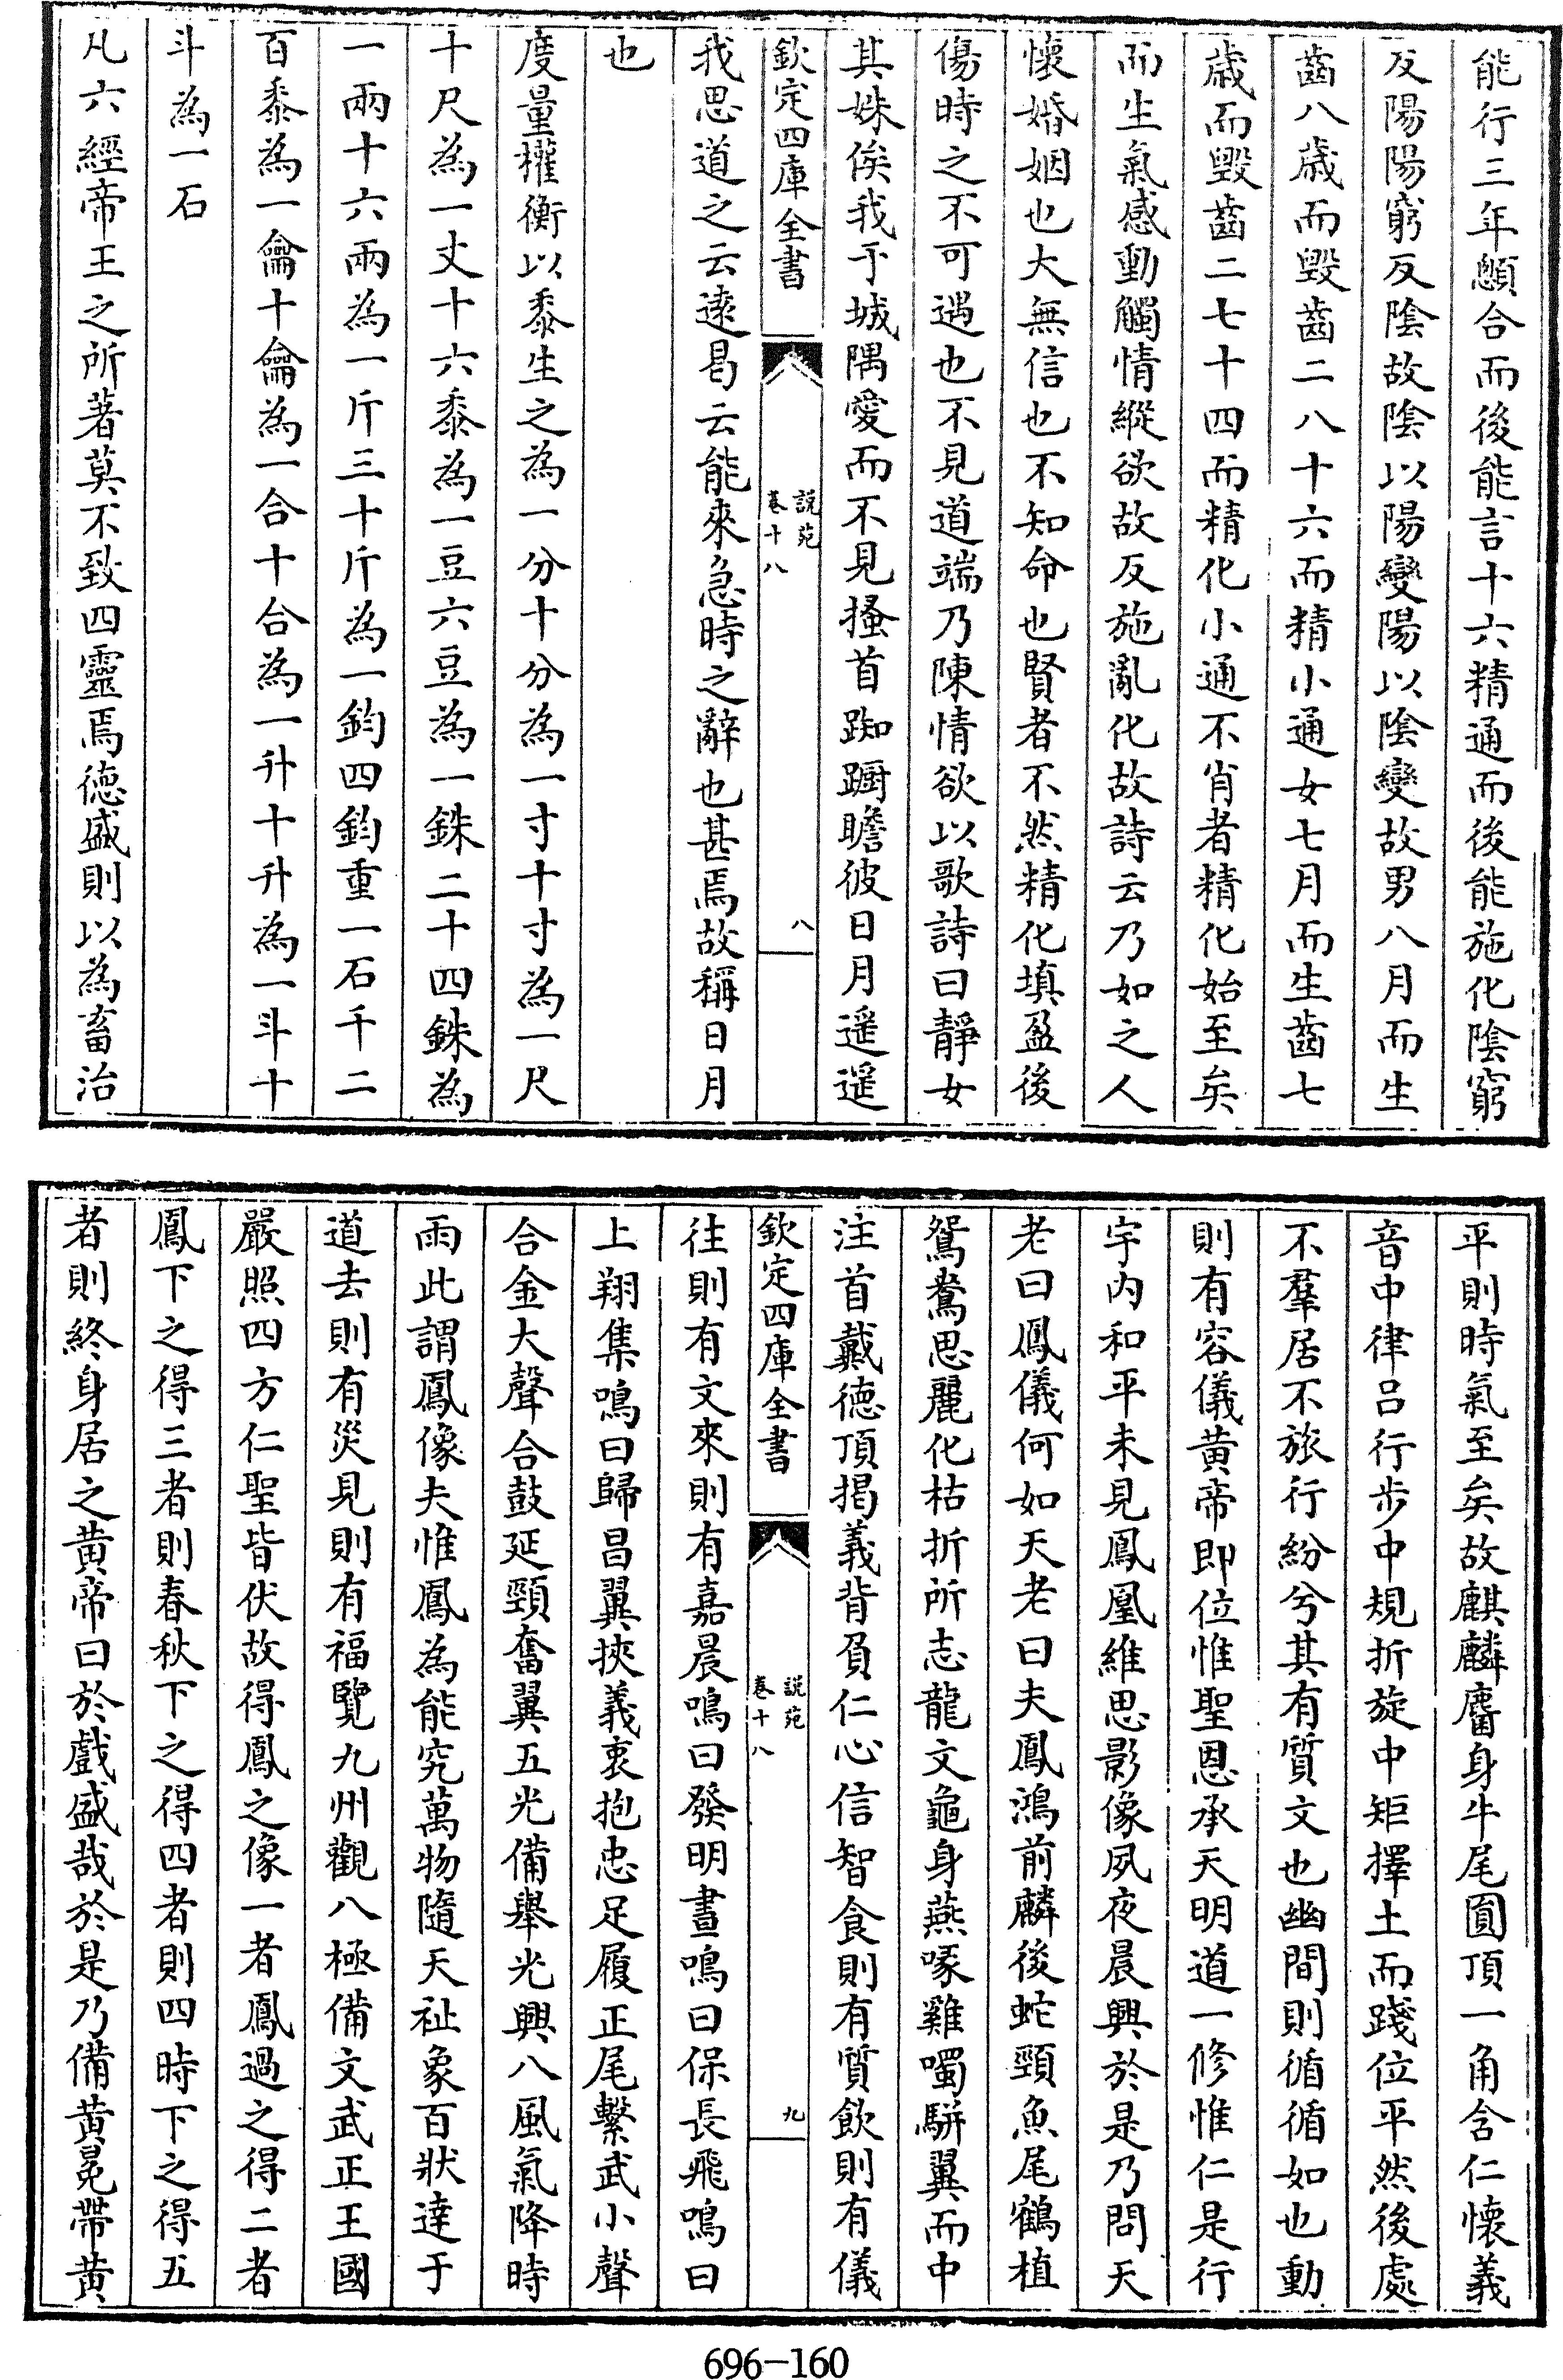 能行三年顖合而後能言十六精通而後能施化陰窮
反陽陽窮反陰故陰以陽變陽以陰變故男八月而生
齒八歳而毁齒二八十六而精小通女七月而生齒七
歳而毁齒二七十四而精化小通不肖者精化始至矣
而生氣感動觸情縱欲故反施亂化故詩云乃如之人
懷婚姻也大無信也不知命也賢者不然精化填盈後
傷時之不可遇也不見道端乃陳情欲以歌詩曰靜女
其姝俟我于城隅愛而不見搔首踟躕瞻彼日月遥遥
欽定四庫全書
說苑
卷十八
八
我思道之云遠曷云能來急時之辭也甚焉故稱日月
也
度量權衡以黍生之為一分十分為一寸十寸為一尺
十尺為一丈十六黍為一豆六豆為一銖二十四銖為
一兩十六兩為一斤三十斤為一鈞四鈞重一石千二
百黍為一龠十龠為一合十合為一升十升為一斗十
斗為一石
凡六經帝王之所著莫不致四靈焉德盛則以為畜治
平則時氣至矣故麒麟麕身牛尾圓頂一角含仁懷義
音中律吕行步中規折旋中矩擇土而踐位平然後處
不羣居不旅行紛兮其有質文也幽間則循循如也動
則有容儀黄帝即位惟聖恩承天明道一修惟仁是行
宇内和平未見鳳凰維思影像夙夜晨興於是乃問天
老曰鳳儀何如天老曰夫鳳鴻前麟後蛇頸魚尾鶴植
鴛鴦思麗化枯折所志龍文龜身燕喙雞噣駢翼而中
注首戴德頂揭義背負仁心信智食則有質飲則有儀
欽定四庫全書
說苑
卷十八
九
往則有文來則有嘉晨鳴曰發明晝鳴曰保長飛鳴曰
上翔集鳴曰歸昌翼挾義衷抱忠足履正尾繫武小聲
合金大聲合鼓延頸奮翼五光備舉光興八風氣降時
雨此謂鳳像夫惟鳳為能究萬物隨天祉象百狀達于
道去則有災見則有福覽九州觀八極備文武正王國
嚴照四方仁聖皆伏故得鳳之像一者鳳過之得二者
鳳下之得三者則春秋下之得四者則四時下之得五
者則終身居之黄帝曰於戲盛哉於是乃備黄冕帶黄
696-160